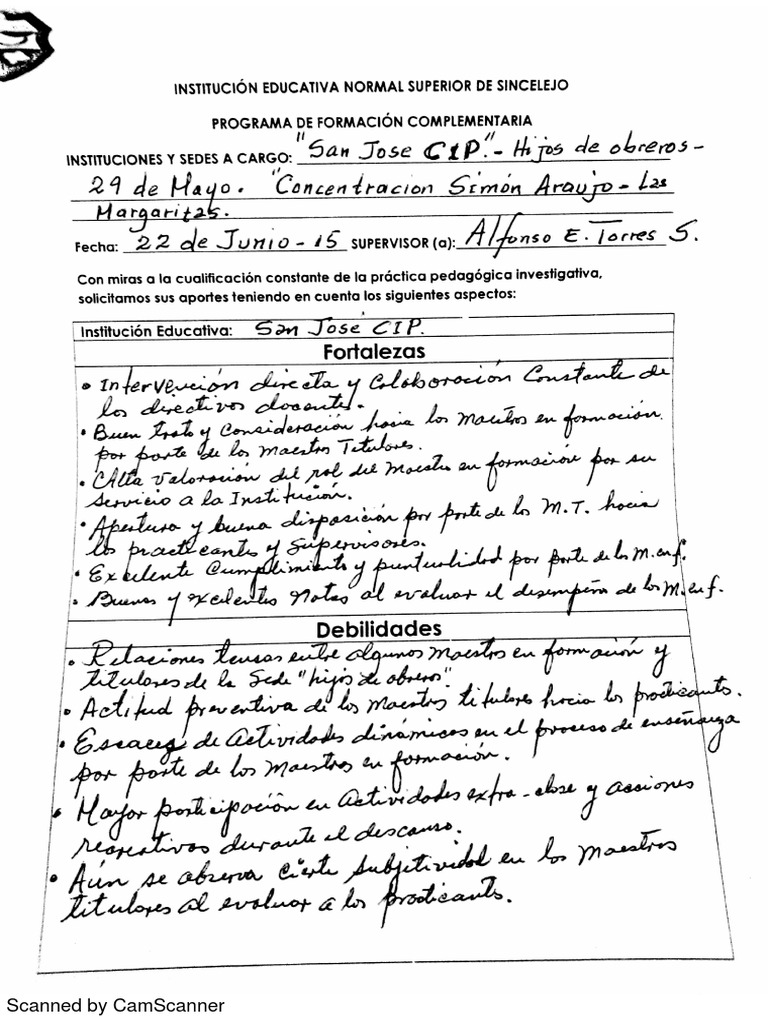 INSTITUCIÓN EDUCATIVA NORMAL SUPERIOR DE SINCELEJO
PROGRAMA DE FORMACIÓN COMPLEMENTARIA
INSTITUCIONES Y SEDES A CARGO: "San Jose CIP." - Hijos de obreros -
29 de Mayo. "Concentracion Simón Araujo - Las
Margaritas.
Fecha: 22 de Junio - 15 SUPERVISOR (a): Alfonso E. Torres S.
Con miras a la cualificación constante de la práctica pedagógica investigativa,
solicitamos sus aportes teniendo en cuenta los siguientes aspectos:
Institución Educativa: San Jose CIP.
Fortalezas
• Intervención directa y Colaboración Constante de
los directivos docentes.
• Buen trato y Consideración hacia los Maestros en formación
por parte de los Maestros Titulares.
• Alta Valoración del rol del Maestro en formación por su
servicio a la Institución.
• Apertura y buena disposición por parte de los M.T. hacia
los practicantes y Supervisores.
• Excelente Cumplimiento y puntualidad por parte de los M. en f.
• Buenas y excelentes Notas al evaluar el desempeño de los M. en f.
Debilidades
• Relaciones tensas entre algunos maestros en formación y
titulares de la Sede "hijos de obreros".
• Actitud preventiva de los Maestros titulares hacia los practicantes.
• Escasez de Actividades dinámicas en el proceso de enseñanza
por parte de los Maestros en formación.
• Mayor participación en Actividades extra-clase y acciones
recreativas durante el descanso.
• Aún se observa cierta subjetividad en los Maestros
titulares al evaluar a los practicantes.
Scanned by CamScanner